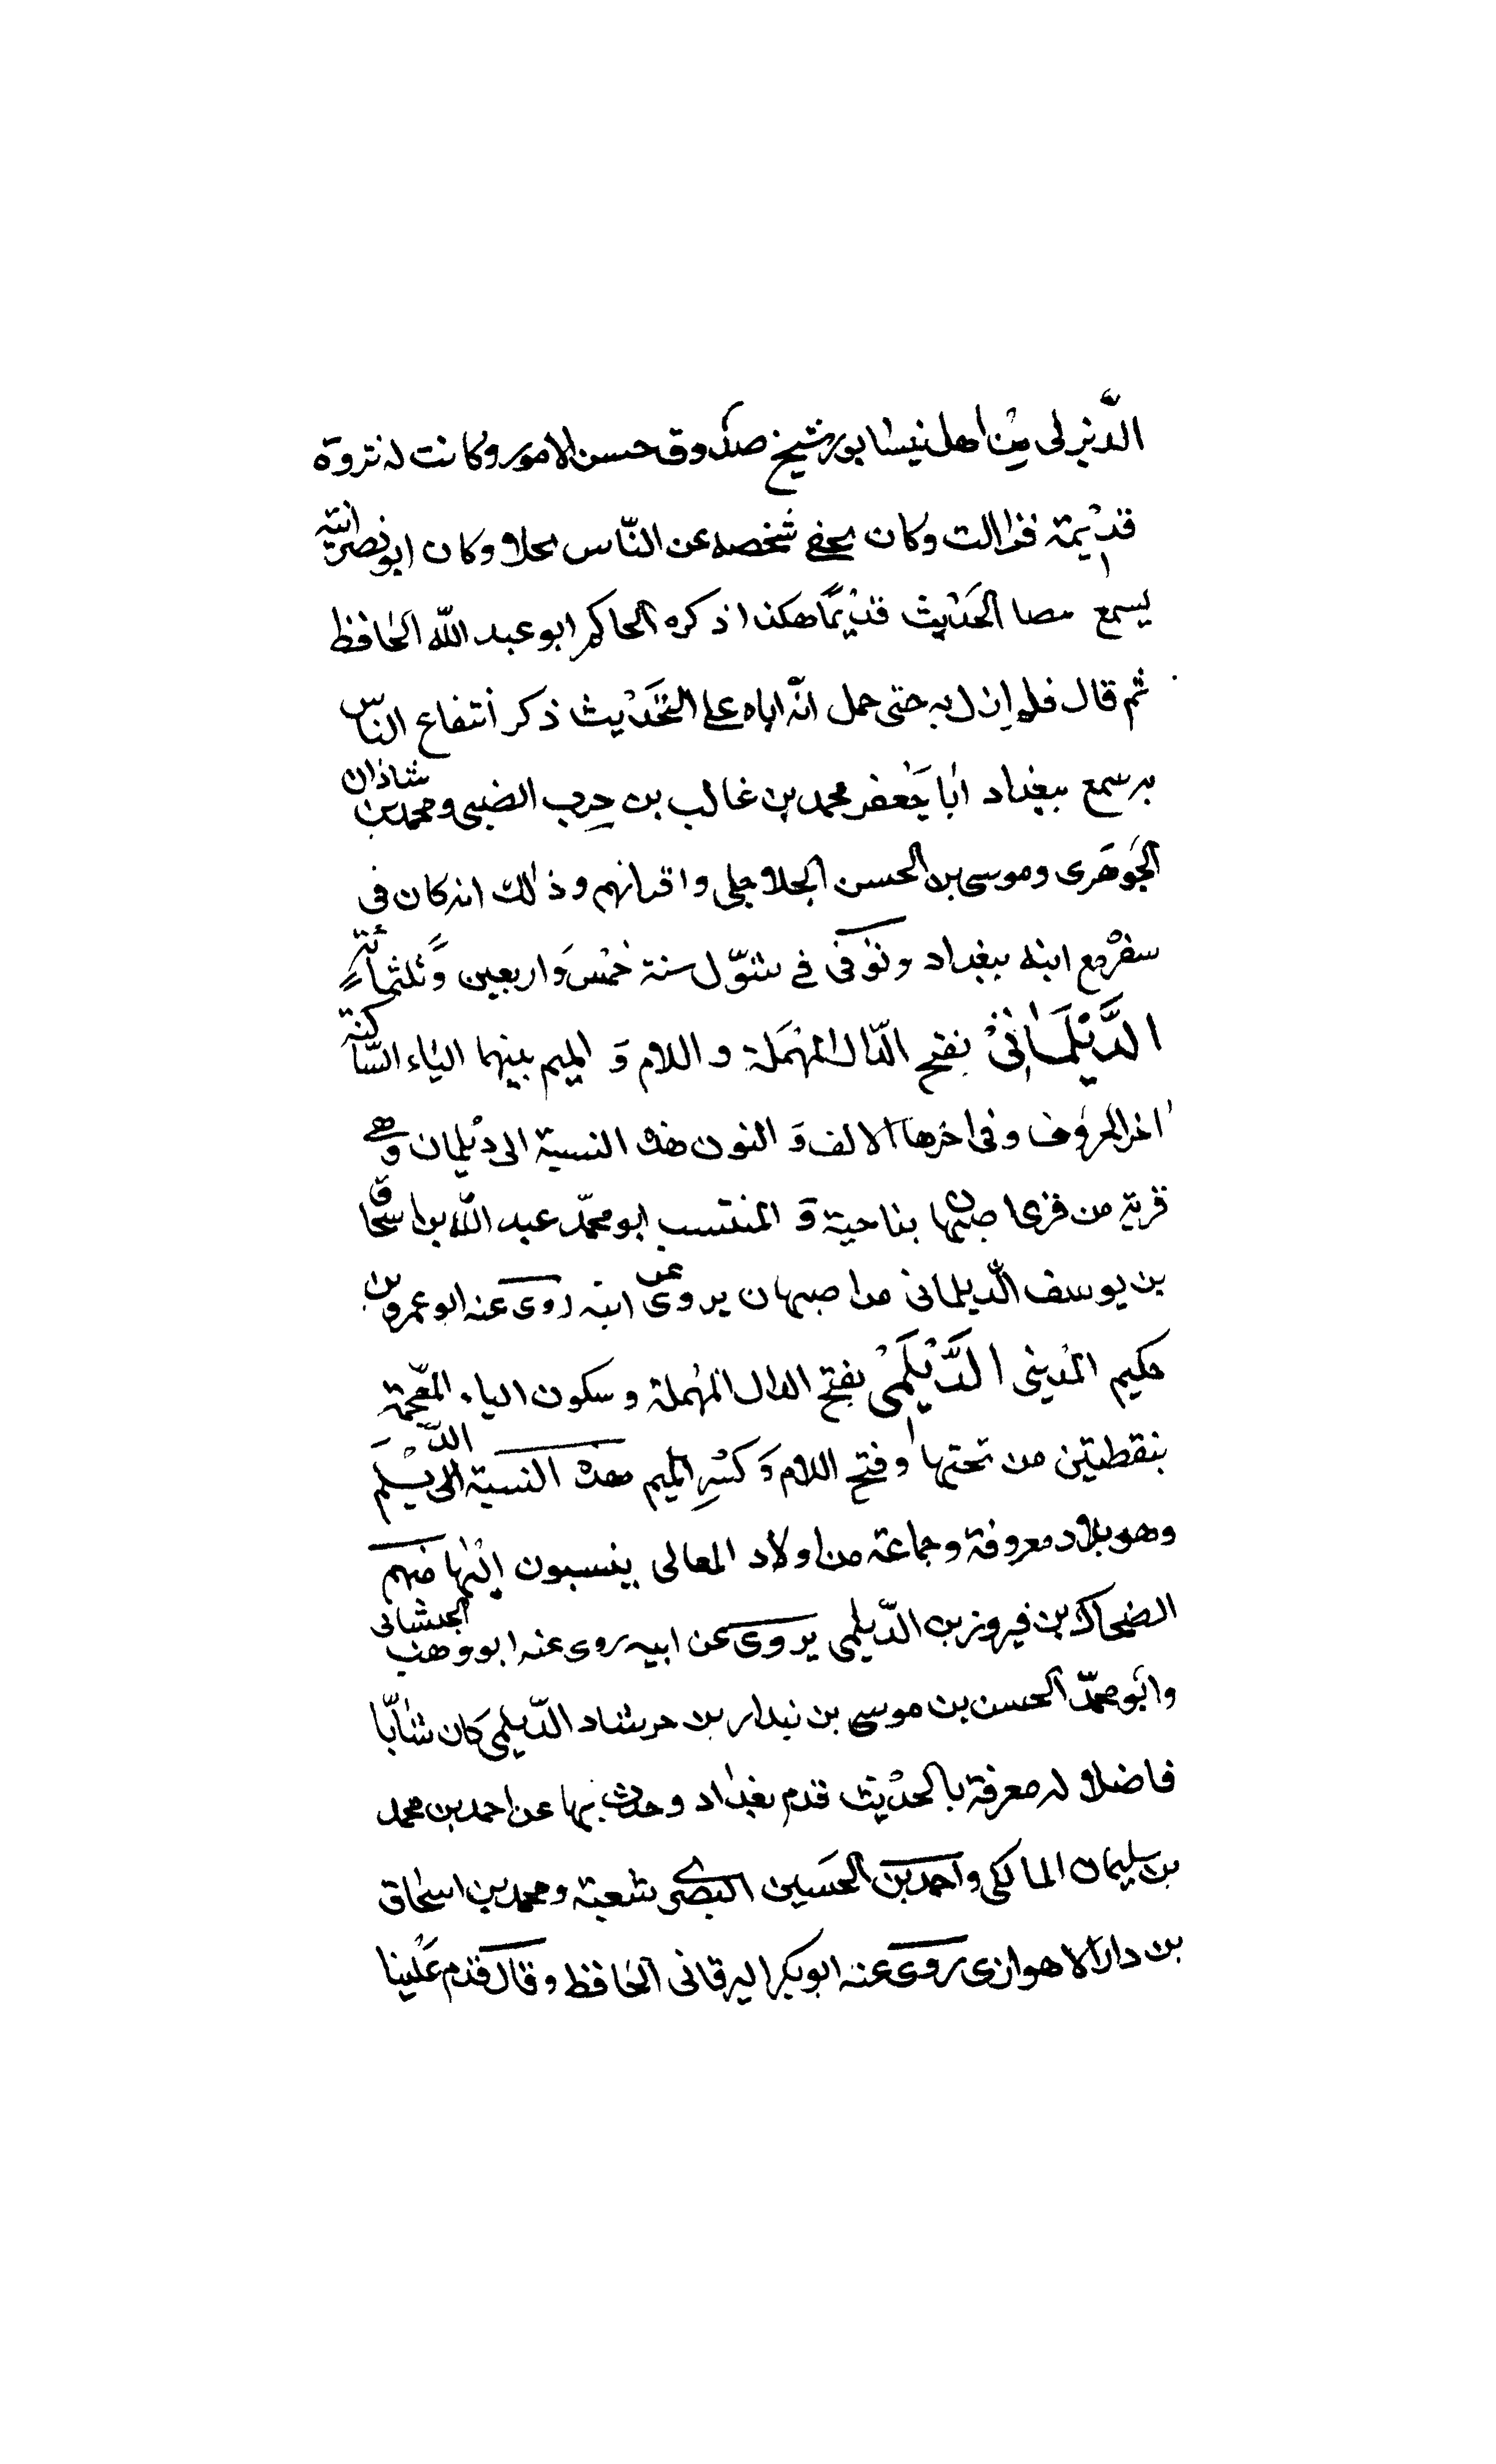 الدّيزلى مِن اهل نيسابور شيخ صدوق حسن الامور وكانت له ثروة
قديمة فزالت وكان يخفى شخصه عن النّاس وكان ابو نصر ابنه
يسمع الحَديث قديمًا هكذا ذكره الحاكم ابو عبد الله الحافظ
ثم قال فلم ازل به حتى حمل انّه اباه على التحَديث ذكر انتفاع الناس
به سمع ببغداد ابا جَعفر محمد بن غالب بن حرب الضبى ومحمد بن شاذان
الجوهَرى وموسى بن الحسن الجلاجلى واقرانهم وذلك انه كان فى
سفر مع ابنه ببغداد وتوفى فى شوّال سنة خمْس وَاربعين وَثلثمائةٍ
الدَّيْلَمَانِىْ بفتح الدّال المهمَلة واللام وَ الميم بينهما الياء السّاكنة
اخر الحروف وفى اخرها الالف وَ النون هذه النسبة الى ديلمان وَهى
قرية من قرى اصبهان بناحية وَ المنتسب ابو محمّد عبد الله بن اسحاق
بن يوسف الدّيلمانى من اصبهان يروى عن ابيه روى عنه ابو عمرو بن
حكيم المدينى الدَّيْلَمىْ بفتح الدال المهملة وسكون الياء المعجمة
بنقطتين من تحتها وفتح اللام وَكسْرِ الميم هذه النسبة الى الدّيْلم
وهو بلاد معروفة وجماعة من اولاد المعالى ينسبون اليْها منهم
الضحاك بن فيروز بن الدّيلمى يروى عن ابيه روى عنه ابو وهب الجيشانى
وابَو محمّد الحسن بن موسى بن بندار بن خرشاد الدّيلمى كان شابّا
فاضلا له معرفة بالحدْيث قدم بغداد وحدث بها عن احمد بن محمد
بن سليمان المالكى واحمد بن الحسَين البصرى شعبة ومحمد بن اسحاق
بن دارا الاهوازى روى عنه ابو بكر البرقانى الحافظ وقال قدم عَلينا